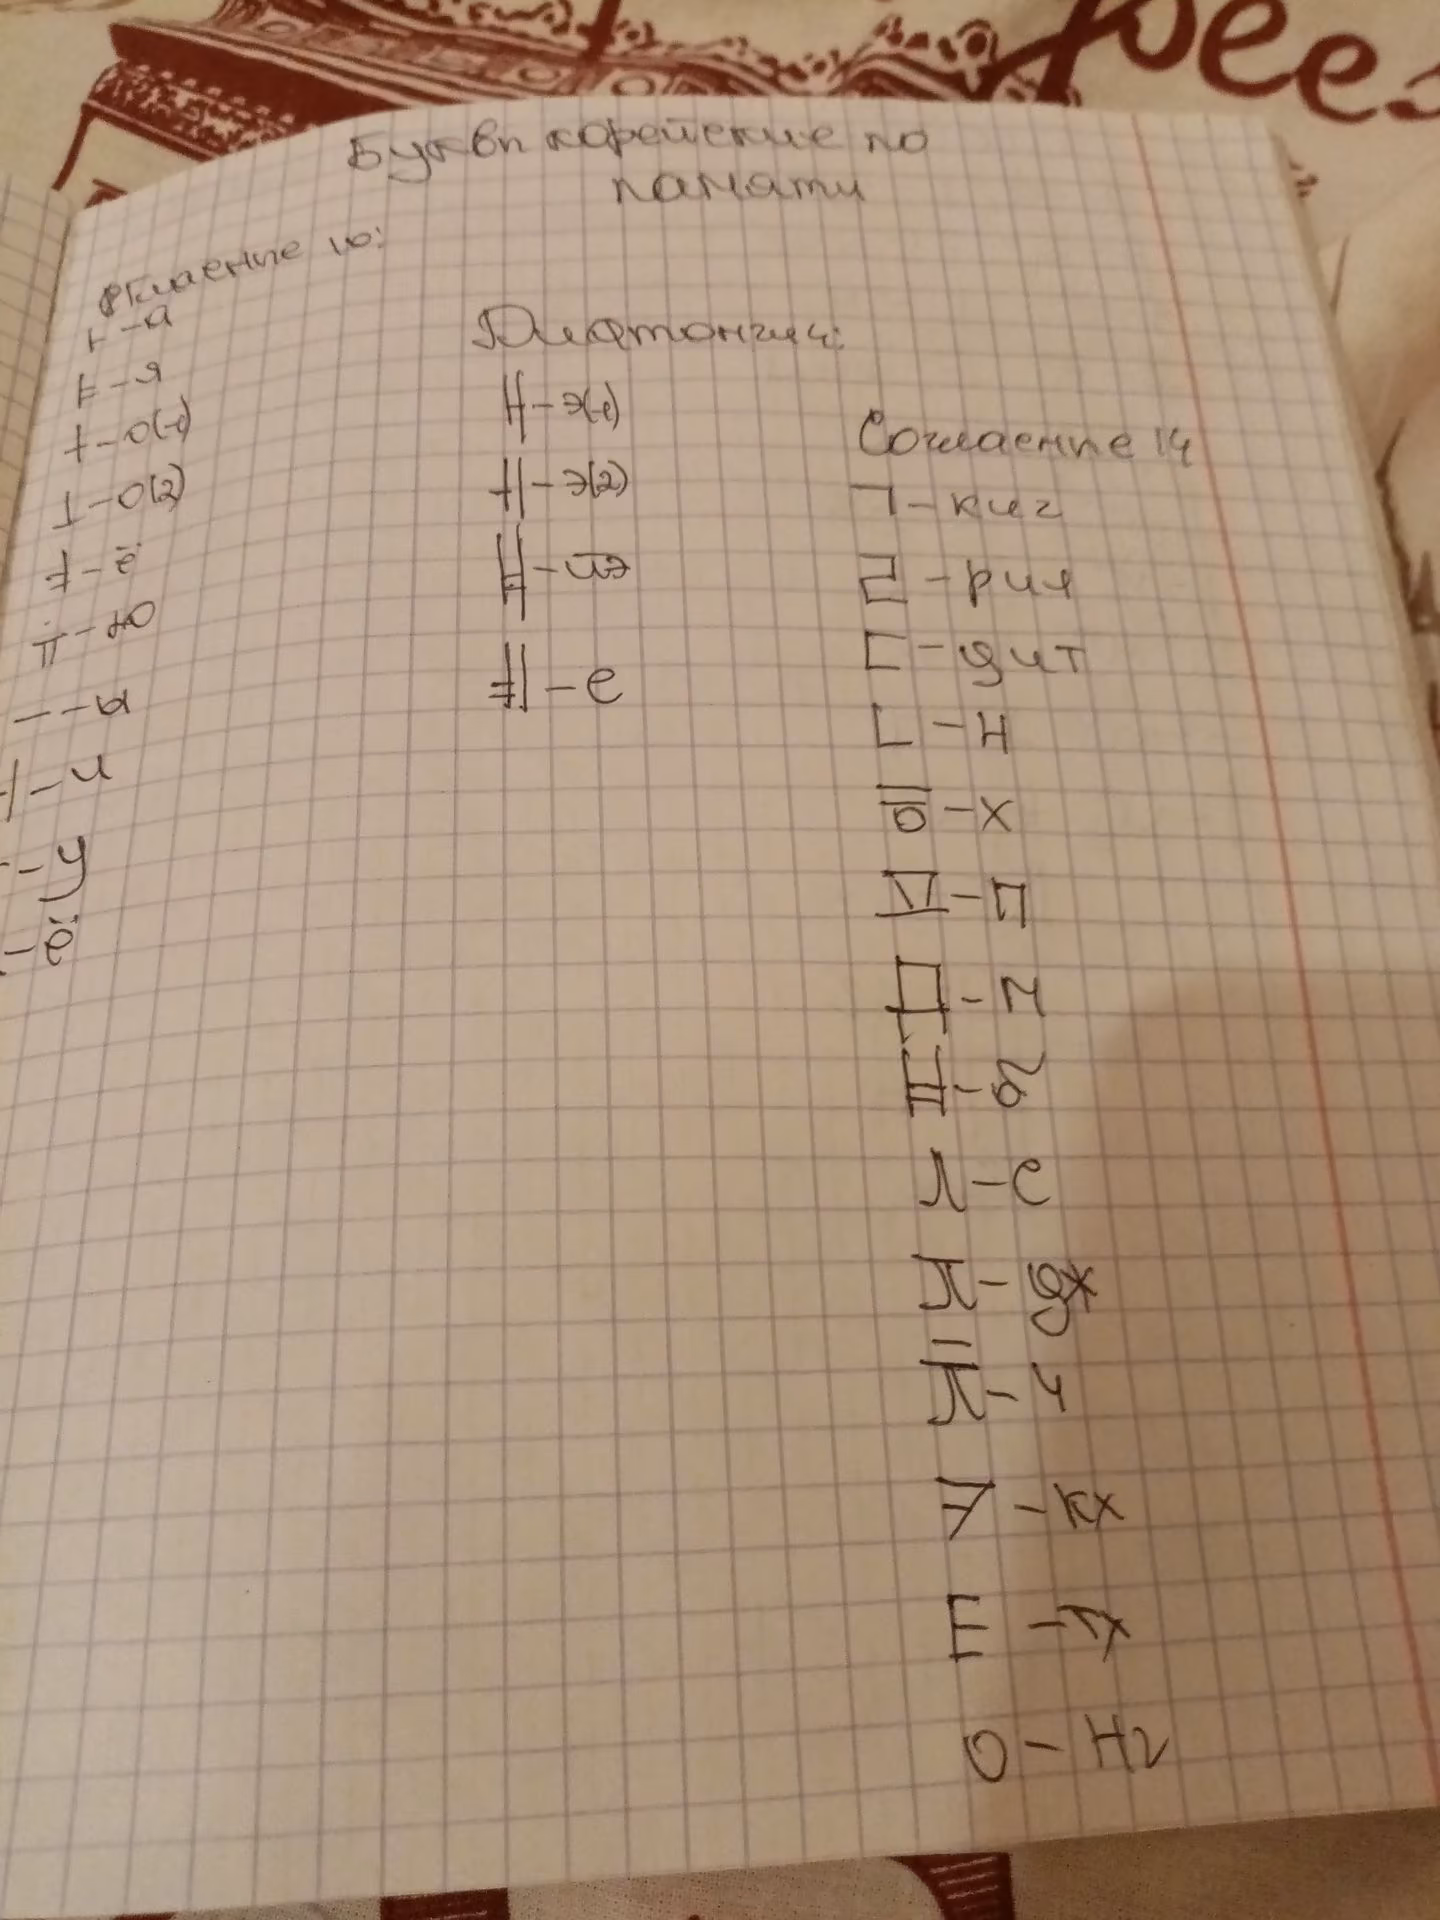 Буквы корейские по
памяти
Гласные 10:
ㅏ-а
ㅑ-я
ㅓ-о(1)
ㅗ-о(2)
ㅕ-ё
ㅠ-ю
ㅡ-ы
ㅣ-и
-у
-ё
Дифтонги 4:
ㅐ-э(1)
ㅔ-э(2)
ㅒ-йэ
ㅖ-е
Согласные 14
ㄱ-киг
ㄹ-рил
ㄷ-дит
ㄴ-н
ㅎ-х
ㅍ-п
ㅁ-м
ㅂ-б
ㅅ-с
ㅈ-дж
ㅊ-ч
ㅋ-кх
ㅌ-тх
ㅇ-нг